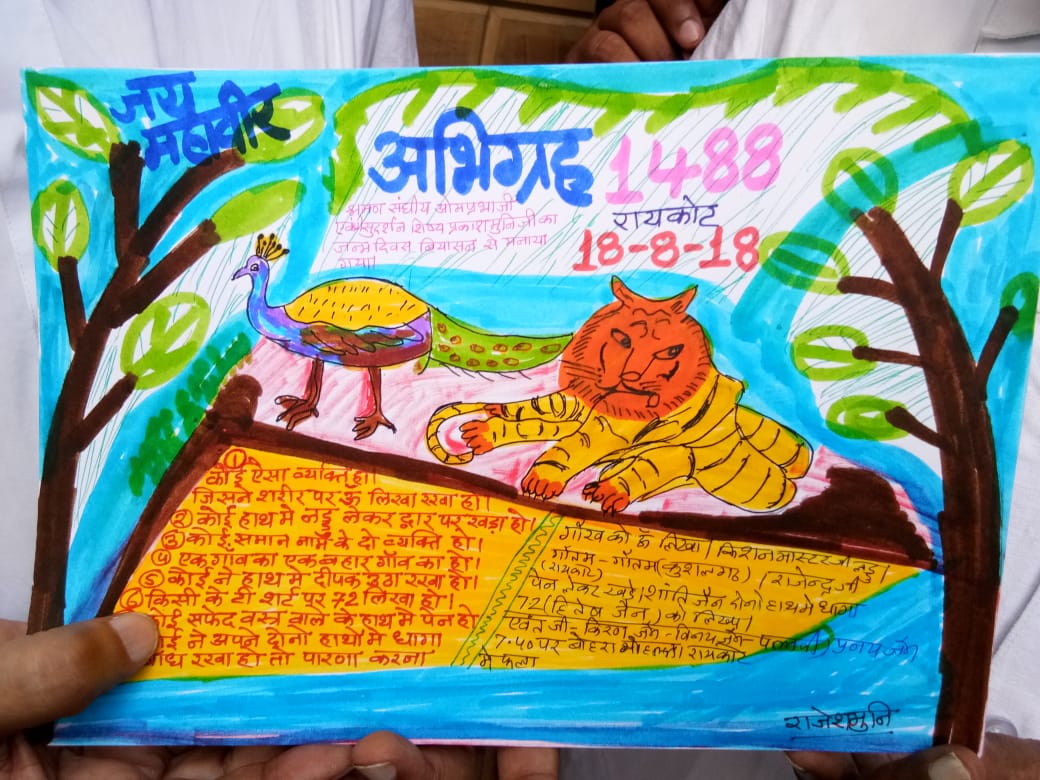 जय
महावीर
अभिग्रह 1488
श्रमण संघीय ओमप्रभाजी
एवं सुदर्शन शिष्य प्रकाशमुनिजी का
जन्म दिवस बियासन से मनाया
गया।
रायकोट
18-8-18
①
कोई ऐसा व्यक्ति हो।
जिसने शरीर पर ॐ लिखा रखा हो।
② कोई हाथ मे लड्डू लेकर द्वार पर खड़ा हो।
③ कोई समान नाम के दो व्यक्ति हो।
④ एक गांव का एक बहार गाँव का हो।
⑤ कोई ने हाथ मे दीपक उठा रखा हो।
⑥ किसी के टी शर्ट पर 72 लिखा हो।
कोई सफेद वस्त्र वाले के हाथ मे पेन हो
कोई ने अपने दोनो हाथो मे धागा
बांध रखा हो तो पारणा करना
को ॐ लिखा। किशन मास्टरजी लड्डू।
गौतम - गौतम (कुशलगढ़) / राजेन्द्र जी
(रायकोट)
पेन लेकर खड़े। शांति जैन दोनो हाथ मे धागा
72 (हितेष जैन) को लिखा।
किरण जैन - विनय जैन प्रनय जैन
7.40 पर बोहरा मोहल्ला रायकोट
मे फला
राजेशमुनि